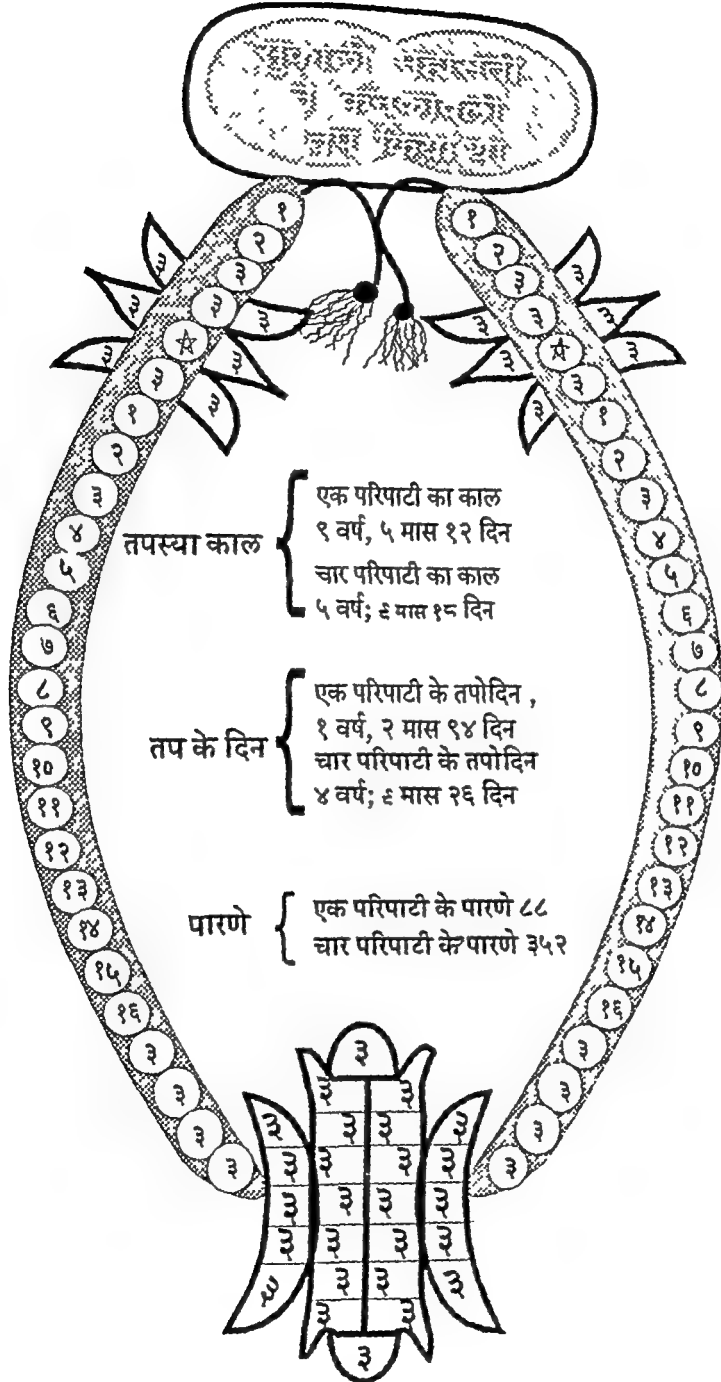 तप किया था
१
२
३
३
३
१
२
३
४
५
६
७
८
९
१०
११
१२
१३
१४
१५
१६
३
३
३
३
३
३
३
३
३
३
१
२
३
३
३
१
२
३
४
५
६
७
८
९
१०
११
१२
१३
१४
१५
१६
३
३
३
३
३
३
३
३
३
३
तपस्या काल
एक परिपाटी का काल
९ वर्ष, ५ मास १२ दिन
चार परिपाटी का काल
५ वर्ष; ९ मास १८ दिन
तप के दिन
एक परिपाटी के तपोदिन ,
१ वर्ष, २ मास ९४ दिन
चार परिपाटी के तपोदिन
४ वर्ष; ९ मास २६ दिन
पारणे
एक परिपाटी के पारणे ८८
चार परिपाटी के पारणे ३५२
३
३ ३
३ ३ ३ ३
३ ३ ३ ३
३ ३ ३ ३
३ ३ ३ ३
३ ३ ३ ३
३ ३
३